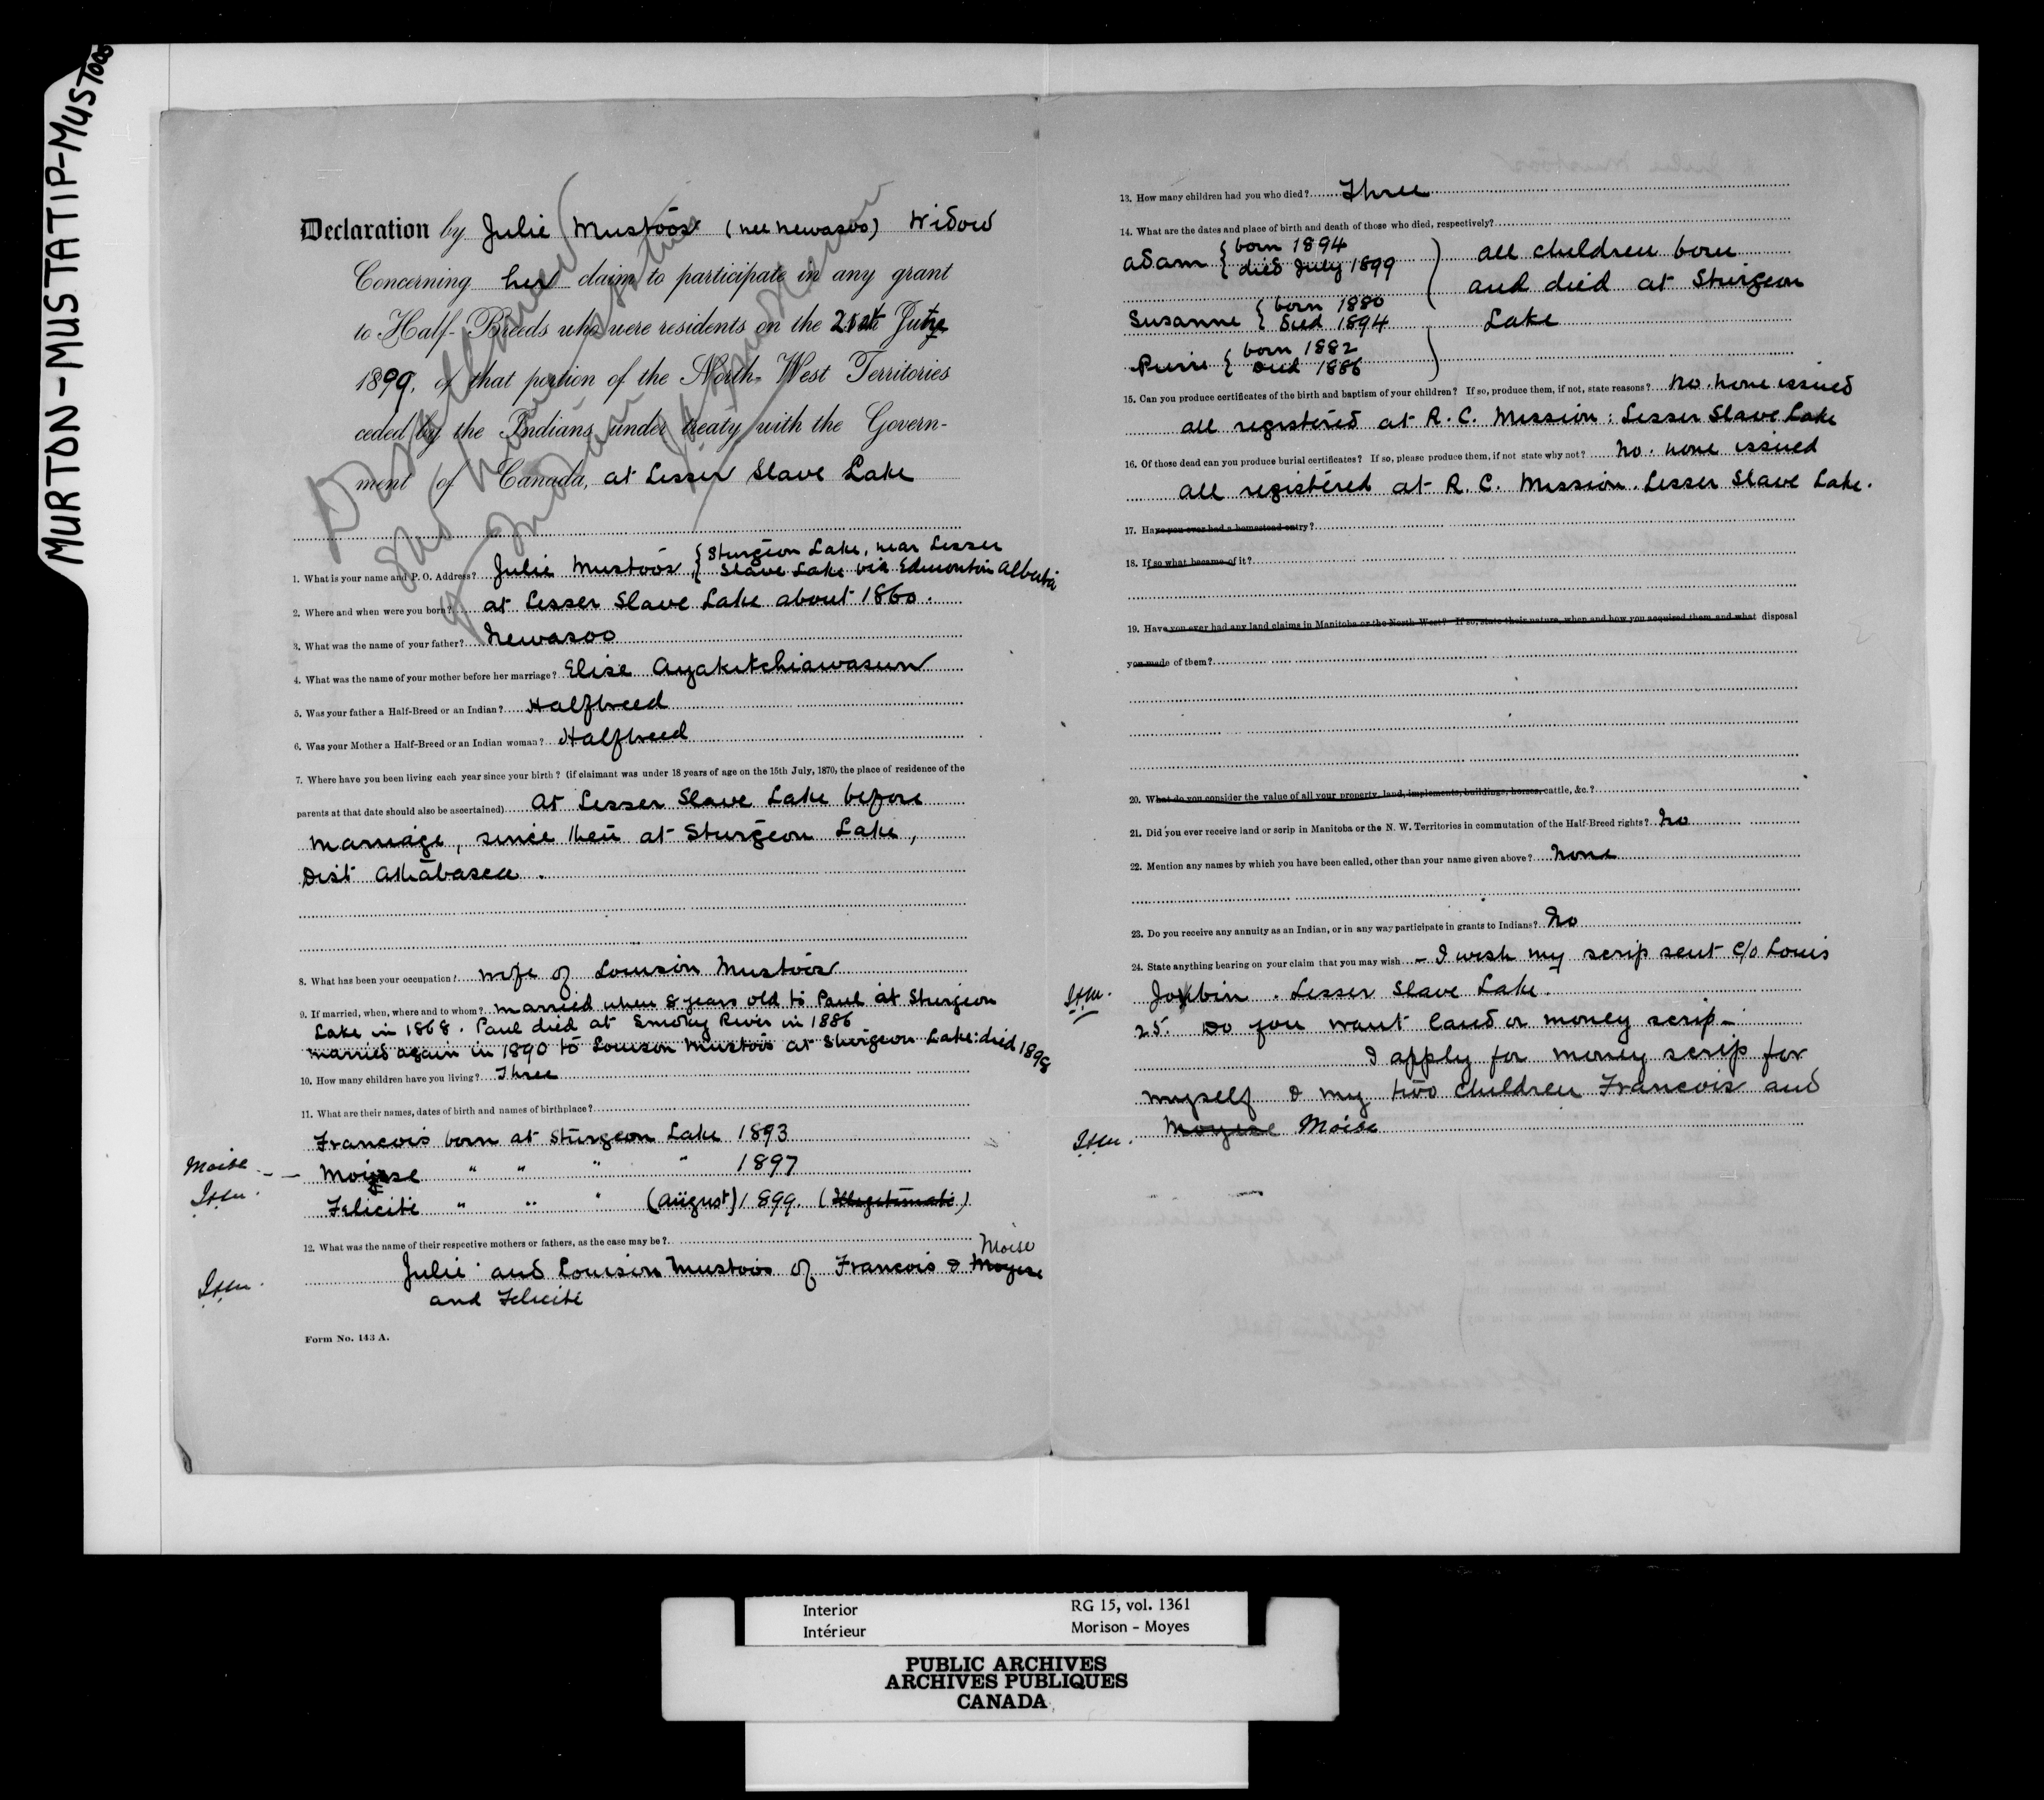 MURTON-MUSTATIP-MUSTOOS
Declaration by Julie Mustoos (nee Newasoo) Widow
Concerning her claim to participate in any grant
to Half-Breeds who were residents on the 21st June
1899, of that portion of the North-West Territories
ceded by the Indians under treaty with the Govern-
ment of Canada, at Lesser Slave Lake
1. What is your name and P. O. Address? Julie Mustoos, { Sturgeon Lake, near Lesser
Slave Lake via Edmonton Alberta
2. Where and when were you born? at Lesser Slave Lake about 1860.
3. What was the name of your father? Newasoo
4. What was the name of your mother before her marriage? Elise Ayakitchiawasun
5. Was your father a Half-Breed or an Indian? Halfbreed
6. Was your Mother a Half-Breed or an Indian woman? Halfbreed
7. Where have you been living each year since your birth? (if claimant was under 18 years of age on the 15th July, 1870, the place of residence of the
parents at that date should also be ascertained) At Lesser Slave Lake before
marriage, since then at Sturgeon Lake,
Dist Athabasca.
8. What has been your occupation? wife of Louison Mustoos
9. If married, when, where and to whom? married when 8 years old to Paul at Sturgeon
Lake in 1868. Paul died at Smoky River in 1886
married again in 1890 to Louison Mustoos at Sturgeon Lake: died 1898
10. How many children have you living? Three
11. What are their names, dates of birth and names of birthplace?
Francois born at Sturgeon Lake 1893
Moise - - Moyse " " " " 1897
Felicité " " " (August) 1899. (Illegitimate)
12. What was the name of their respective mothers or fathers, as the case may be?
Moise
Julie and Louison Mustoos of Francois & Moyse
and Felicité
Form No. 143 A.
13. How many children had you who died? Three
14. What are the dates and place of birth and death of those who died, respectively?
Adam { born 1894
died July 1899 ) all children born
and died at Sturgeon
Susanne { born 1880
died 1894 Lake
Pierre { born 1882
died 1886 )
15. Can you produce certificates of the birth and baptism of your children? If so, produce them, if not, state reasons? No. none issued
all registered at R. C. Mission: Lesser Slave Lake
16. Of those dead can you produce burial certificates? If so, please produce them, if not state why not? No. none issued
all registered at R. C. Mission. Lesser Slave Lake.
17. Have you ever had a homestead entry?
18. If so what became of it?
19. Have you ever had any land claims in Manitoba or the North-West? If so, state their nature, when and how you acquired them and what disposal
you made of them?
20. What do you consider the value of all your property, land, implements, buildings, horses, cattle, &c.?
21. Did you ever receive land or scrip in Manitoba or the N. W. Territories in commutation of the Half-Breed rights? No
22. Mention any names by which you have been called, other than your name given above? None
23. Do you receive any annuity as an Indian, or in any way participate in grants to Indians? No
24. State anything bearing on your claim that you may wish - I wish my scrip sent c/o Louis
Jobin. Lesser Slave Lake.
25. Do you want land or money scrip -
I apply for money scrip for
myself & my two children Francois and
Moyese Moise
Interior
Intérieur
RG 15, vol. 1361
Morison - Moyes
PUBLIC ARCHIVES
ARCHIVES PUBLIQUES
CANADA